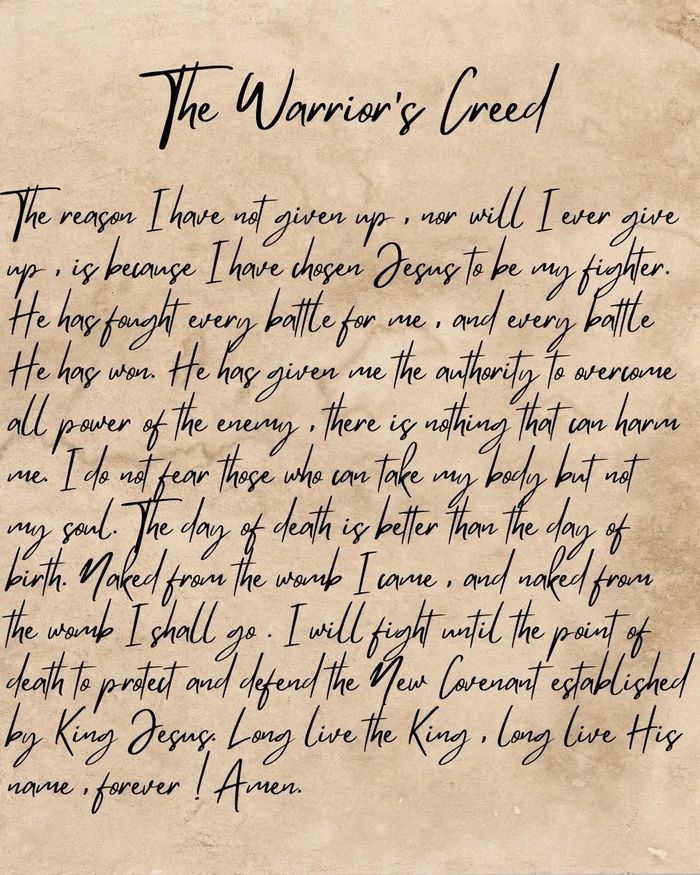 The Warrior's Creed
The reason I have not given up , nor will I ever give
up , is because I have chosen Jesus to be my fighter.
He has fought every battle for me , and every battle
He has won. He has given me the authority to overcome
all power of the enemy , there is nothing that can harm
me. I do not fear those who can take my body but not
my soul. The day of death is better than the day of
birth. Naked from the womb I came , and naked from
the womb I shall go . I will fight until the point of
death to protect and defend the New Covenant established
by King Jesus. Long live the King , long live His
name , forever ! Amen.